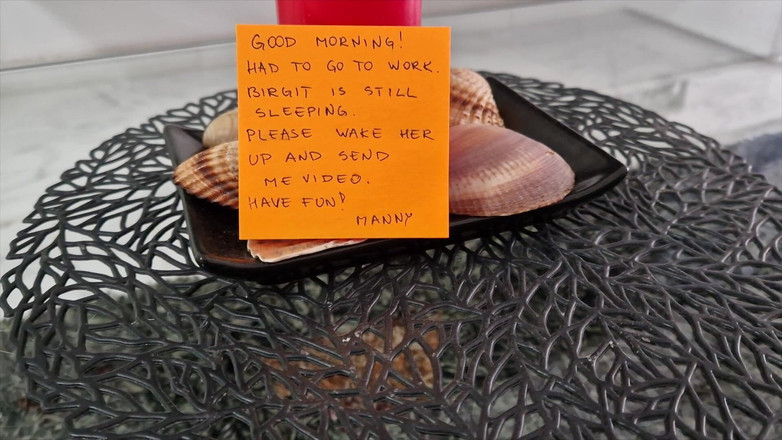 GOOD MORNING!
HAD TO GO TO WORK.
BIRGIT IS STILL
SLEEPING.
PLEASE WAKE HER
UP AND SEND
ME VIDEO.
HAVE FUN!
MANNY